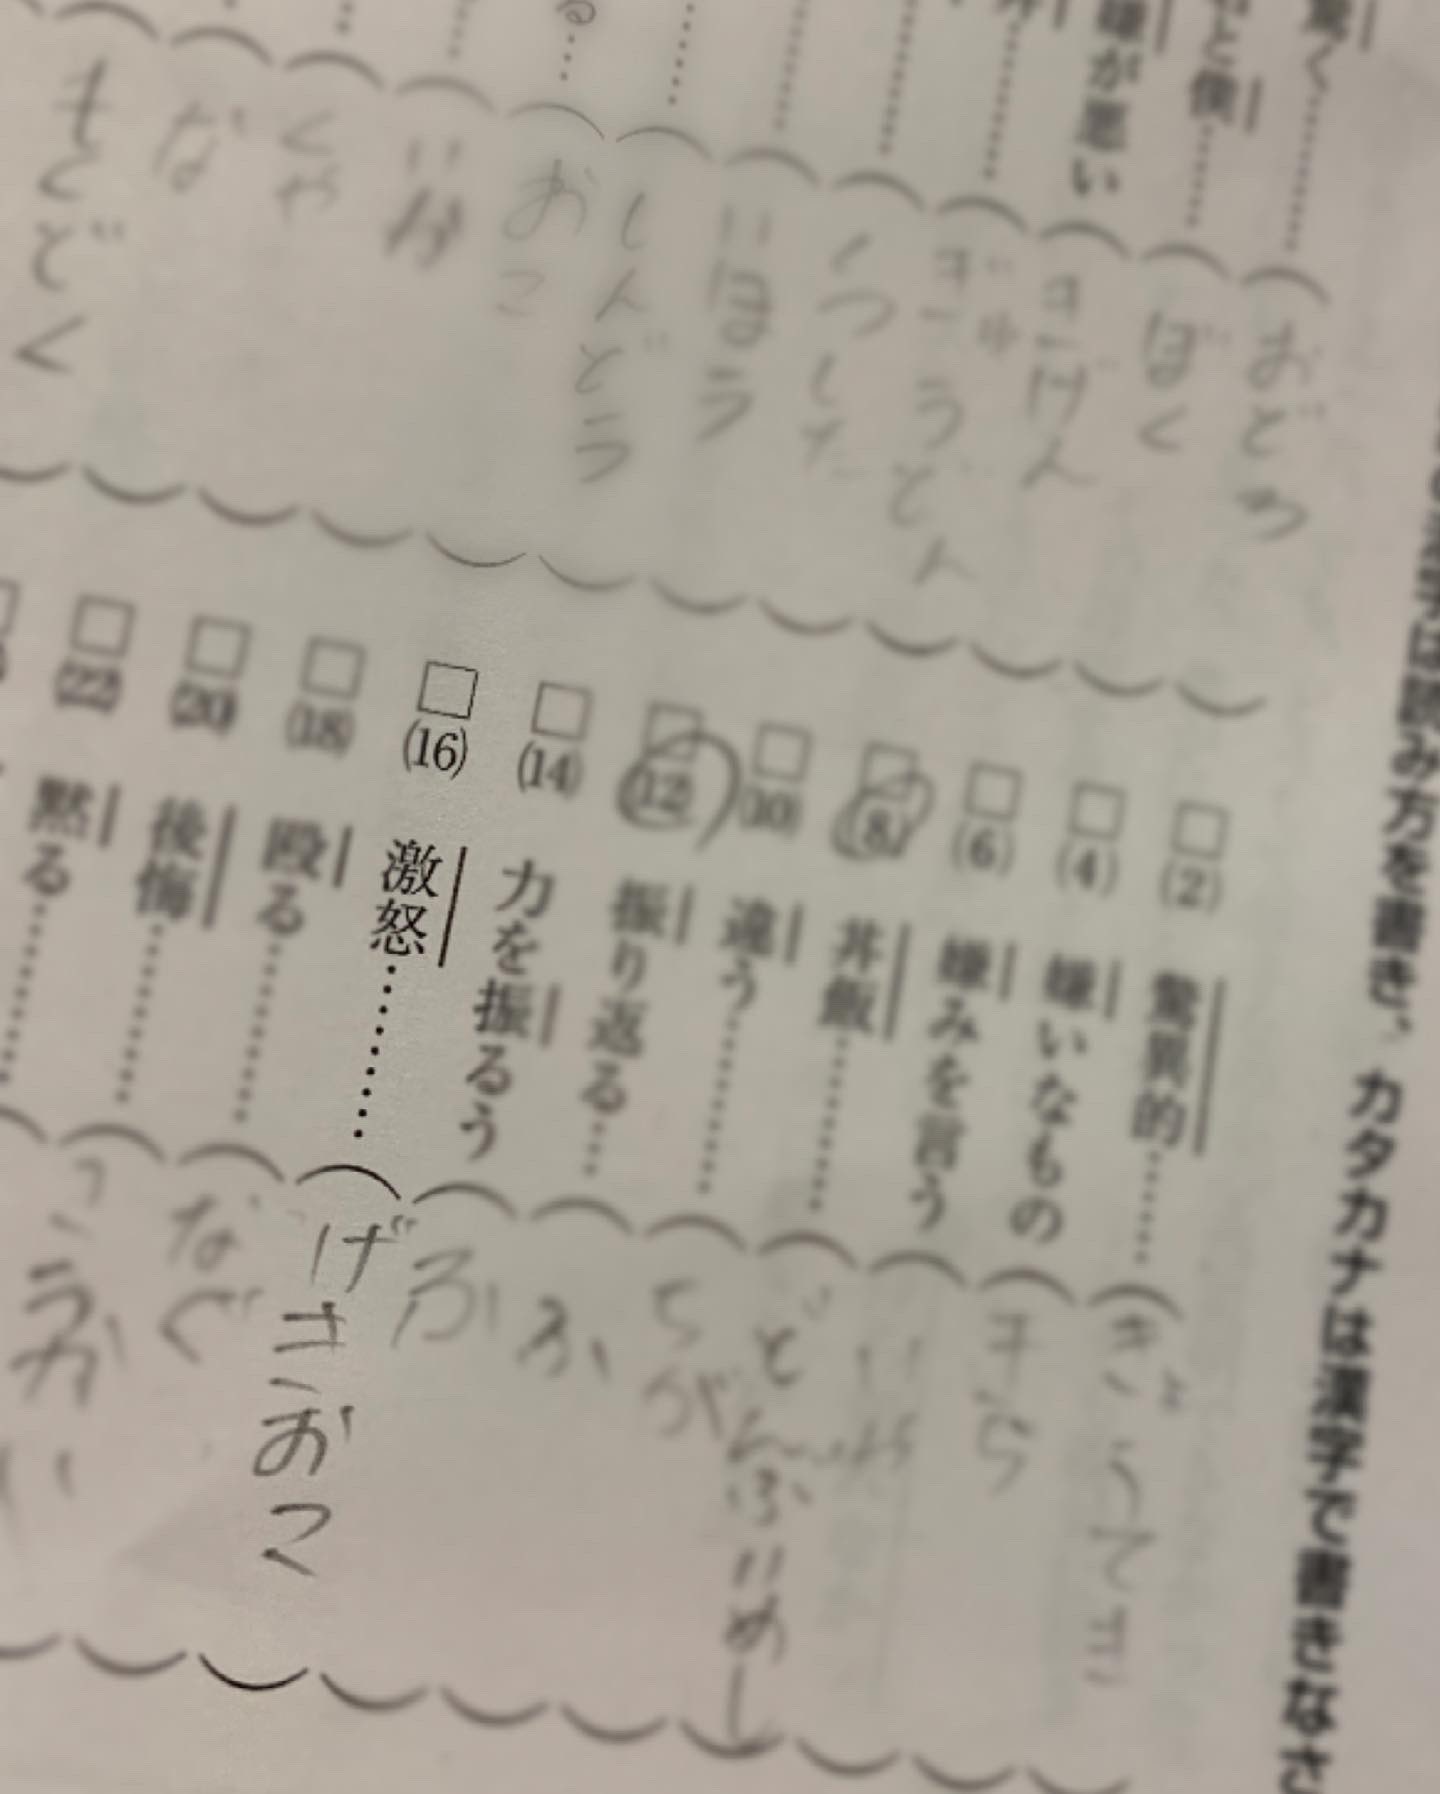 の漢字は読み方を書き、カタカナは漢字で書きなさ
驚く
おどろ
僕
ぼく
嫌が悪い
きげん
ぎゅうどん
くつした
いほう
しんどう
る
おこ
いか
くや
な
もくどく
(2) 驚異的
きょうてき
(4) 嫌いなもの
きら
(6) 嫌みを言う
いや
(8) 丼飯
どんぶいめし
(10) 違う
ちが
(12) 振り返る
ふ
(14) 力を振るう
ふ
(16) 激怒
げきおこ
(18) 殴る
なぐ
(20) 後悔
こうかい
(22) 黙る